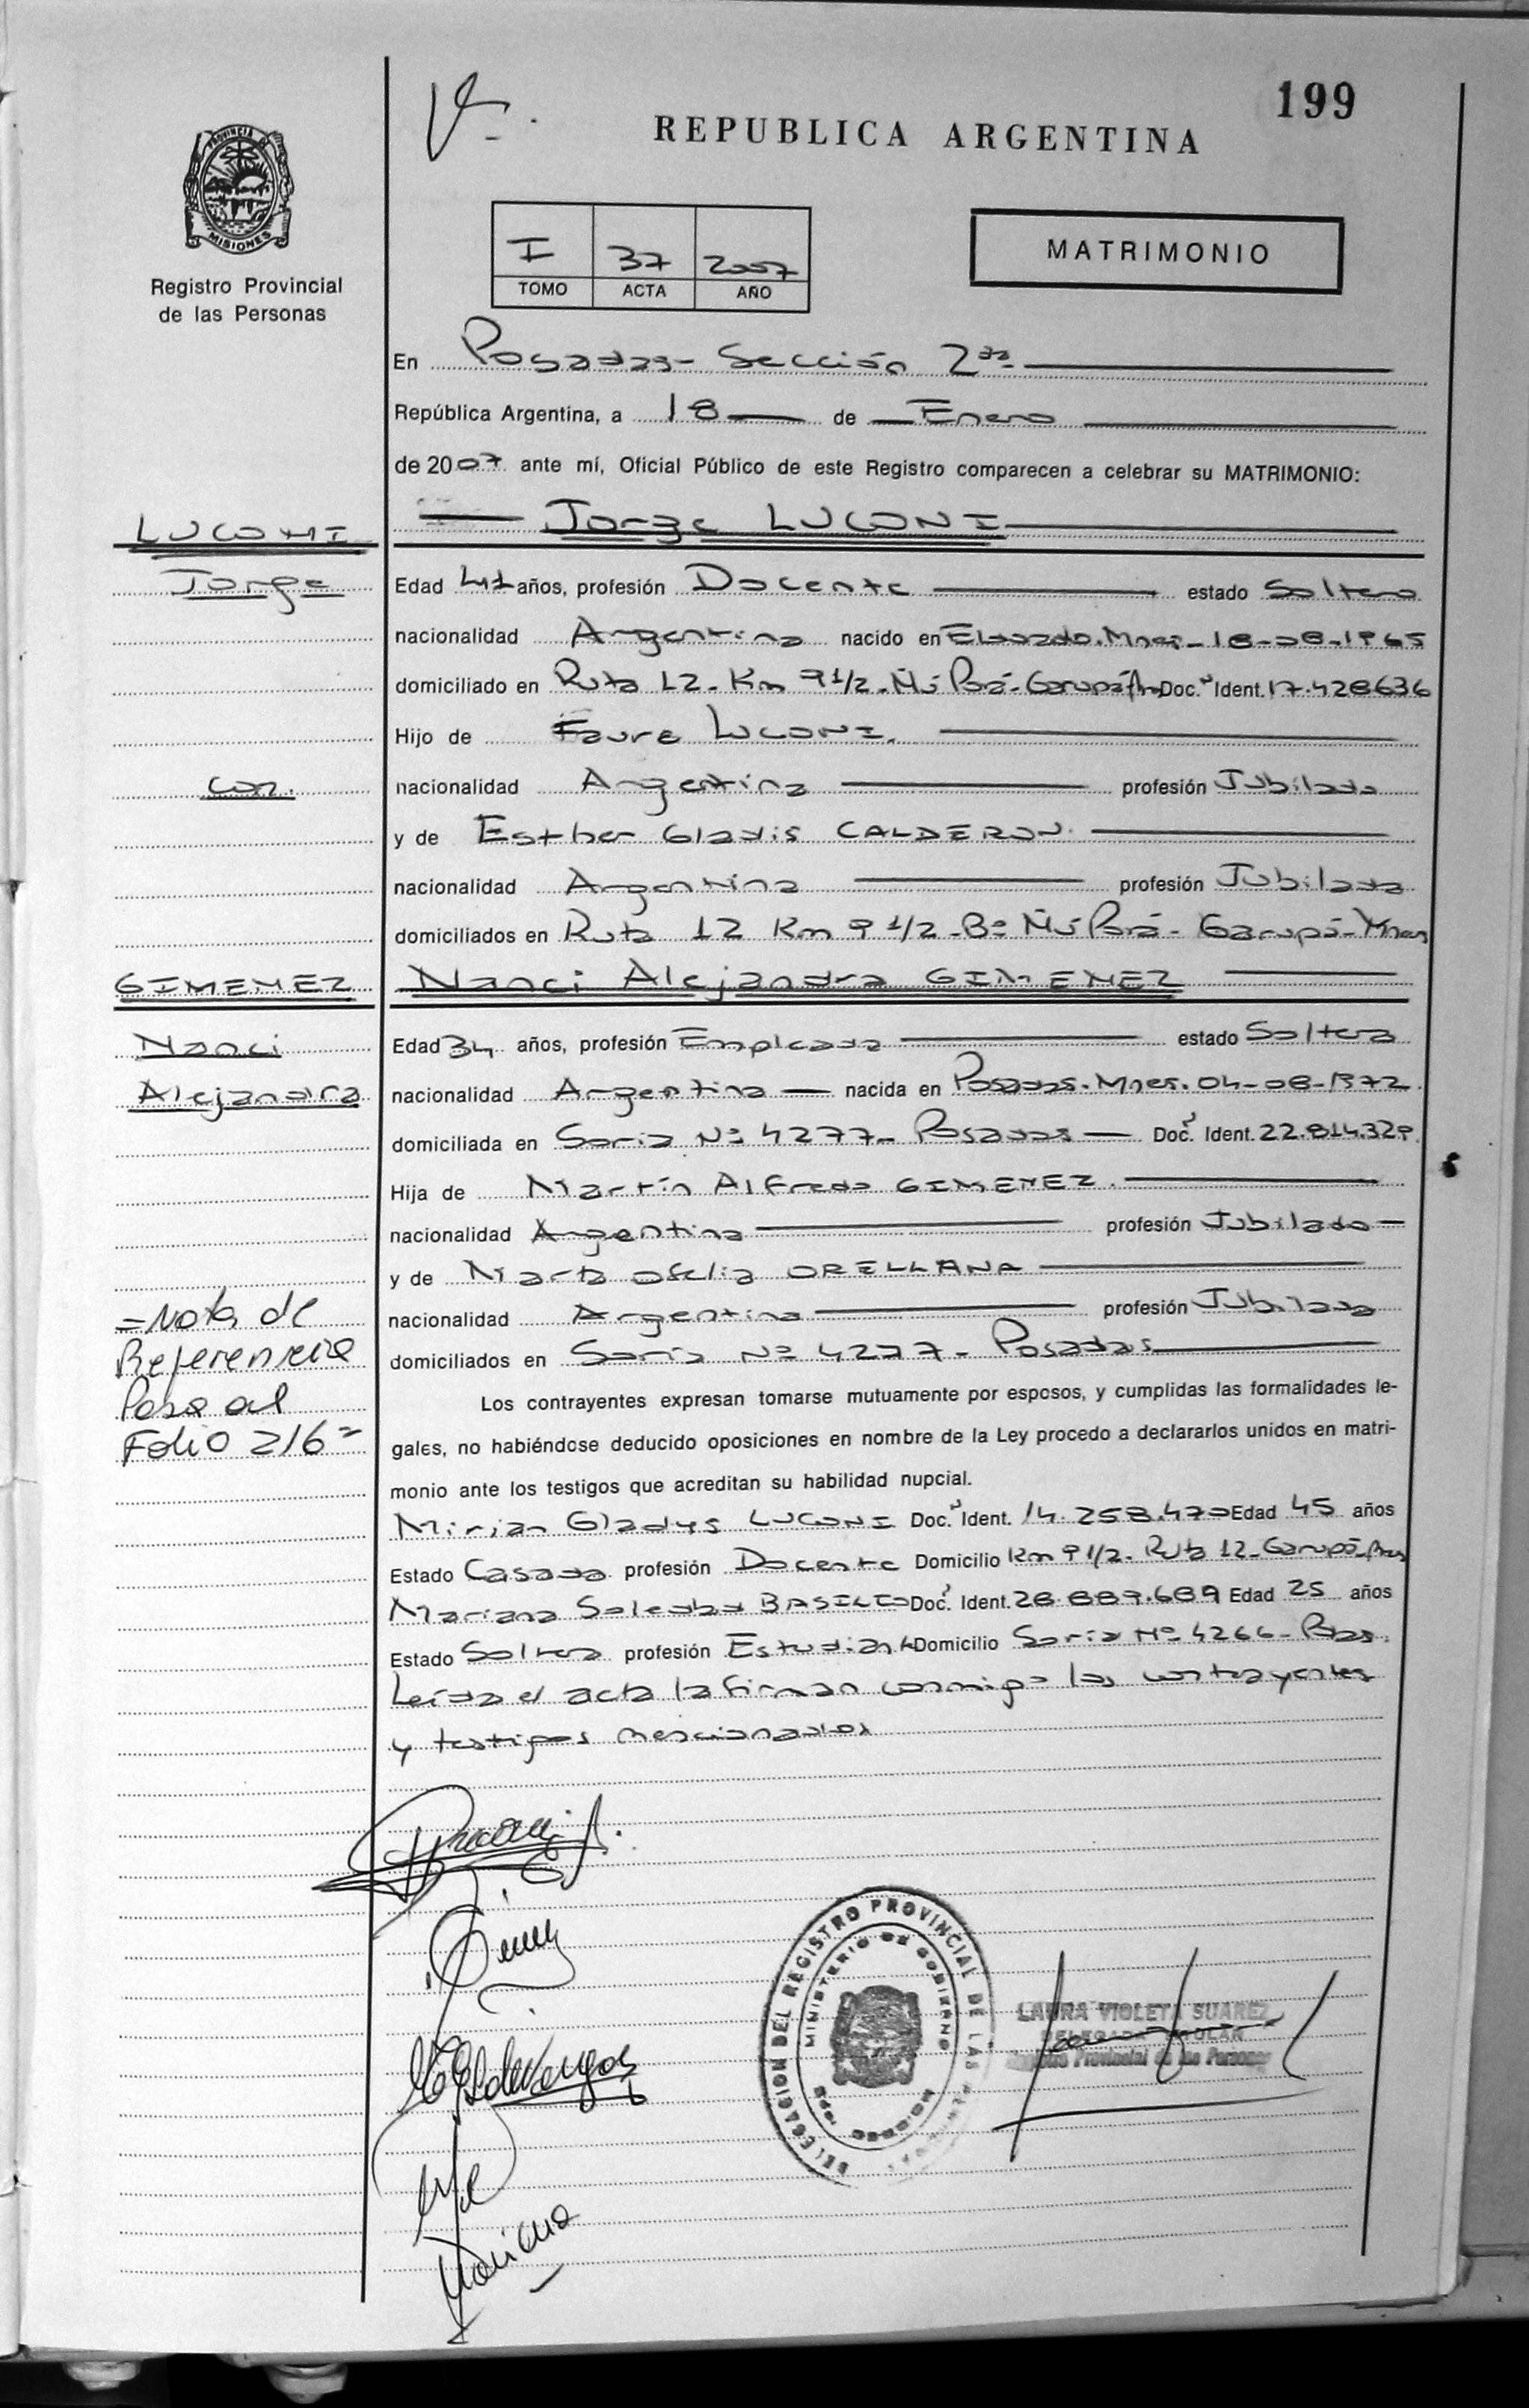 199
REPUBLICA ARGENTINA
PROVINCIA DE
MISIONES
Registro Provincial
de las Personas
I 37 2007
TOMO ACTA AÑO
MATRIMONIO
En Posadas - Sección 2da
República Argentina, a 18 de Enero
de 2007 ante mí, Oficial Público de este Registro comparecen a celebrar su MATRIMONIO:
LUCONI Jorge LUCONI
Jorge Edad 41 años, profesión Docente estado Soltero
nacionalidad Argentina nacido en Eldorado. Mnes - 18-08-1965
domiciliado en Ruta 12 - Km 9 1/2 - Ñú Porá - Garupá Doc. Ident. 17.428636
Hijo de Faure LUCONI.
con. nacionalidad Argentina profesión Jubilado
y de Esther Gladis CALDERON.
nacionalidad Argentina profesión Jubilada
domiciliados en Ruta 12 Km 9 1/2 - Bº Ñú Porá - Garupá - Mnes
GIMENEZ Nanci Alejandra GIMENEZ
Nanci Edad 34 años, profesión Empleada estado Soltera
Alejandra nacionalidad Argentina nacida en Posadas. Mnes. 04-08-1972
domiciliada en Soria Nº 4277 - Posadas Doc. Ident. 22.814.329
Hija de Martín Alfredo GIMENEZ.
nacionalidad Argentina profesión Jubilado
y de Marta Ofelia ORELLANA
= Nota de nacionalidad Argentina profesión Jubilada
Referencia domiciliados en Soria Nº 4277 - Posadas
Pasa al Los contrayentes expresan tomarse mutuamente por esposos, y cumplidas las formalidades le-
Folio 216 = gales, no habiéndose deducido oposiciones en nombre de la Ley procedo a declararlos unidos en matri-
monio ante los testigos que acreditan su habilidad nupcial.
Mirian Gladys LUCONI Doc. Ident. 14.258.470 Edad 45 años
Estado Casada profesión Docente Domicilio Km 9 1/2 - Ruta 12 - Garupá - Mnes
Mariana Soledad BASILIO Doc. Ident. 28.889.689 Edad 25 años
Estado Soltera profesión Estudiante Domicilio Soria Nº 4266 - Pdas.
Leída el acta la firman conmigo los contrayentes
y testigos mencionados
DELEGACION DEL REGISTRO PROVINCIAL DE LAS
MINISTERIO DE GOBIERNO
LAURA VIOLETA SUAREZ
DELEGADA TITULAR
Registro Provincial de las Personas
Mariana